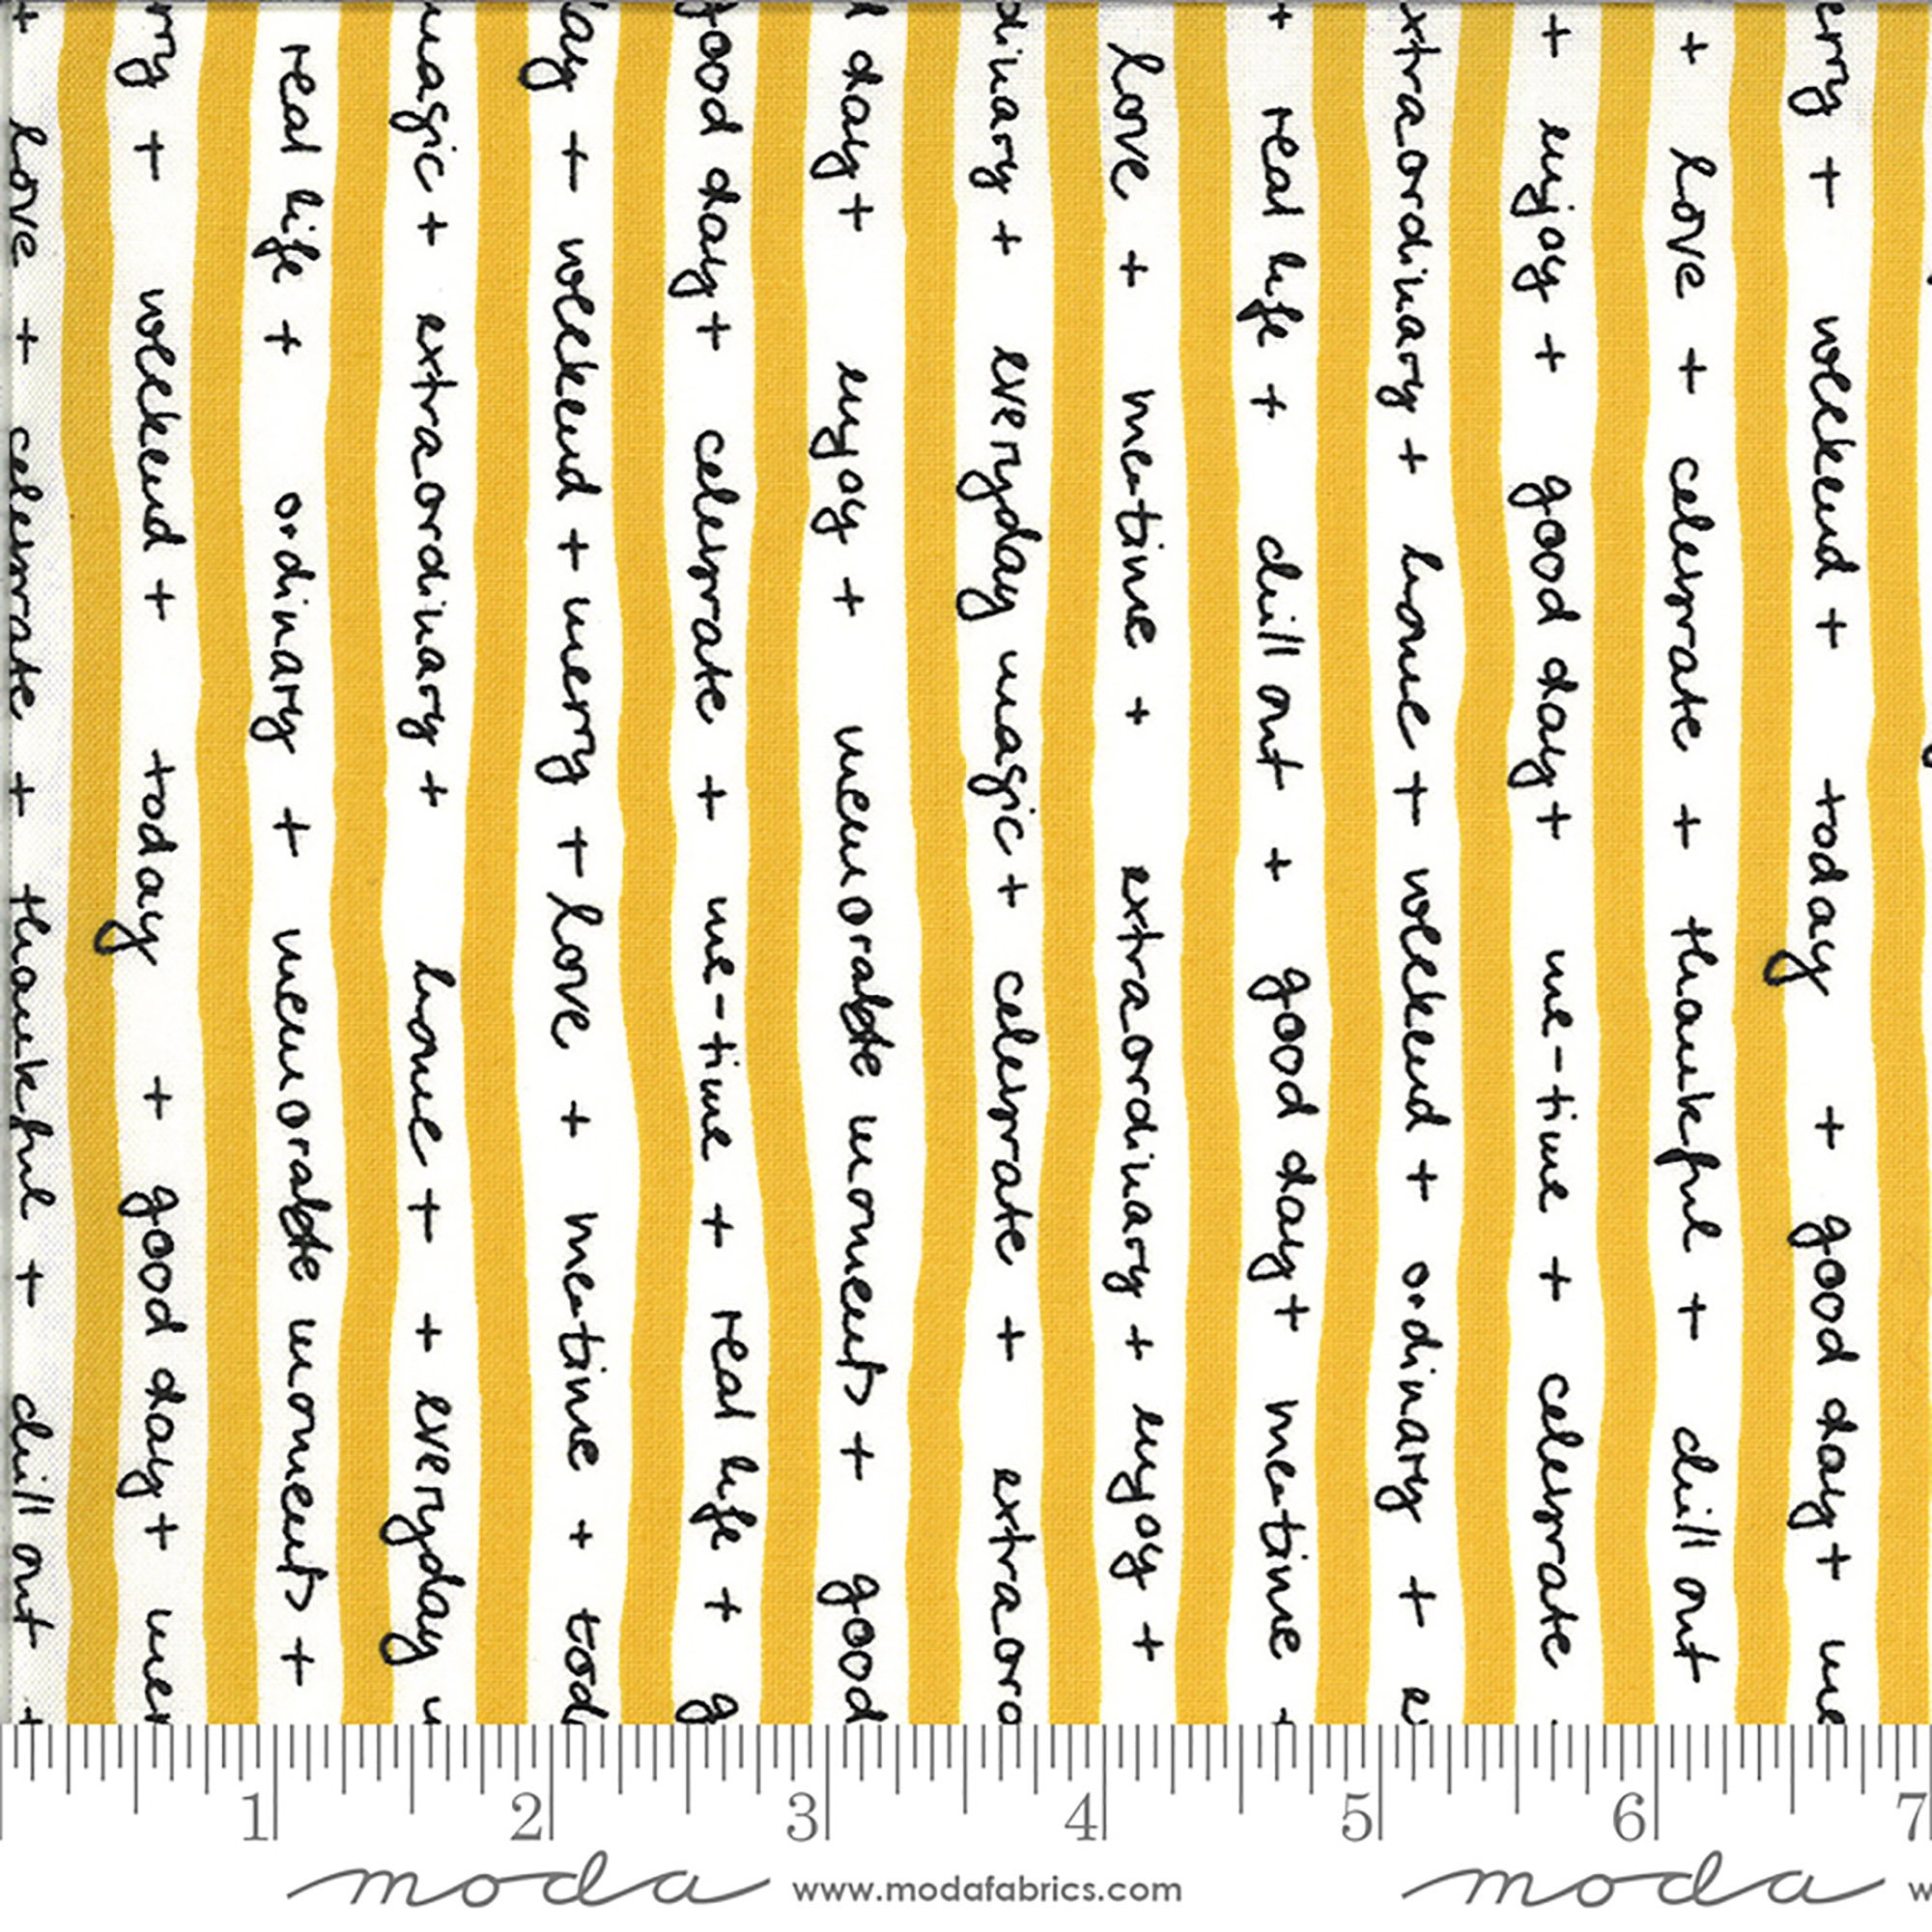 + love + celebrate + thankful + chill out +
rry + weekend + today + good day +
real life + ordinary + memorable moments +
magic + extraordinary + home + + everyday
ay + weekend + merry + love + me-time + tod
good day + celebrate + me-time + real life + g
day + enjoy + memorable moments + good
dinary + everyday magic + celebrate + extraord
love + me-time + extraordinary + enjoy +
+ real life + chill out + good day + me-time +
xtraordinary + home + weekend + ordinary +
+ enjoy + good day + me-time + celebrate
+ love + celebrate + thankful + chill out
erry + weekend + today + good day +
1 2 3 4 5 6 7
moda www.modafabrics.com moda w